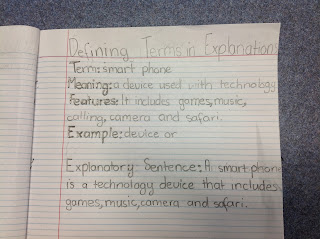 Defining Terms in Explanations
Term: smart phone
Meaning: a device used with technology
Features: It includes games, music,
calling, camera and safari.
Example: device or
Explanatory Sentence: A smart phone
is a technology device that includes
games, music, camera and safari.